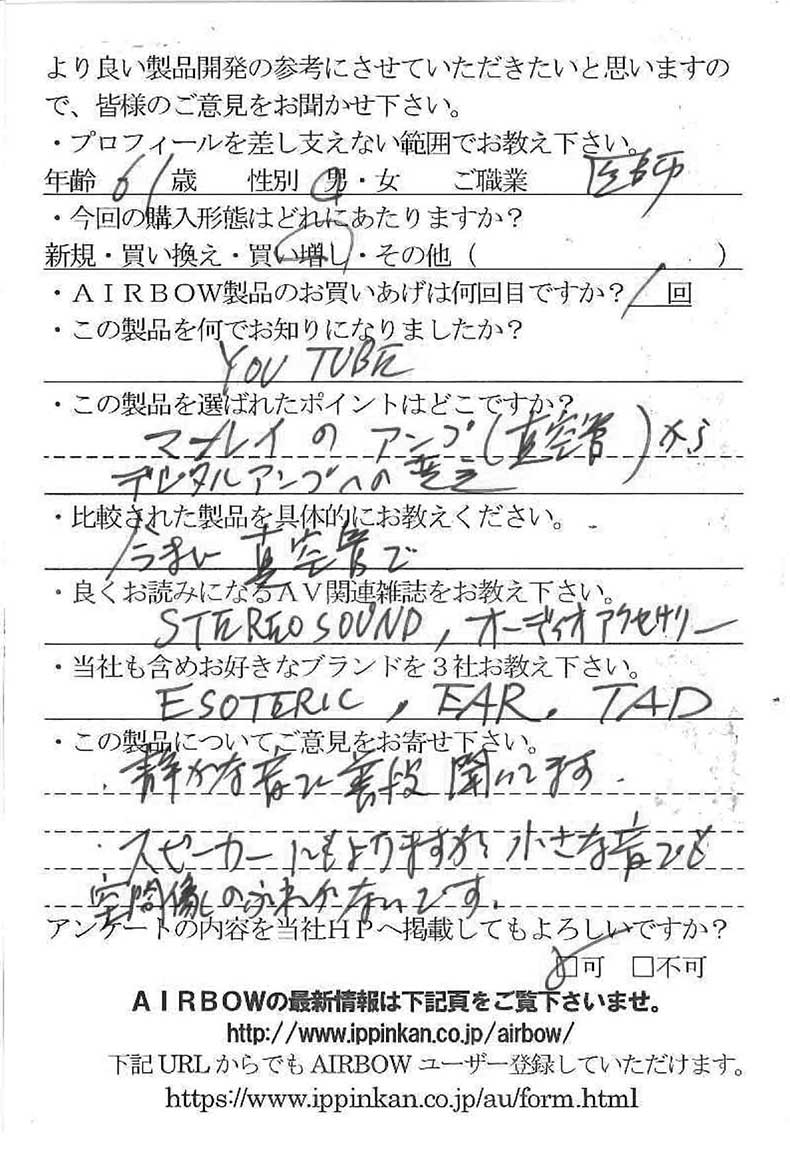 より良い製品開発の参考にさせていただきたいと思いますの
で、皆様のご意見をお聞かせ下さい。
・プロフィールを差し支えない範囲でお教え下さい。
年齢 61 歳 性別 男・女 ご職業 医師
・今回の購入形態はどれにあたりますか？
新規・買い換え・買い増し・その他（ ）
・ＡＩＲＢＯＷ製品のお買いあげは何回目ですか？ 1 回
・この製品を何でお知りになりましたか？
YOU TUBE
・この製品を選ばれたポイントはどこですか？
マーレイの アンプ(真空管)から
デジタルアンプへの
・比較された製品を具体的にお教えください。
今まで 真空管で
・良くお読みになるAV関連雑誌をお教え下さい。
STEREO SOUND, オーディオアクセサリー
・当社も含めお好きなブランドを３社お教え下さい。
ESOTERIC, EAR, TAD
・この製品についてご意見をお寄せ下さい。
・静かな音で普段 聞いてます.
・スピーカーにもよりますが 小さな音でも
空間像のぶれがないです.
アンケートの内容を当社ＨＰへ掲載してもよろしいですか？
☑可 □不可
ＡＩＲＢＯＷの最新情報は下記頁をご覧下さいませ。
http://www.ippinkan.co.jp/airbow/
下記 URL からでも AIRBOW ユーザー登録していただけます。
https://www.ippinkan.co.jp/au/form.html